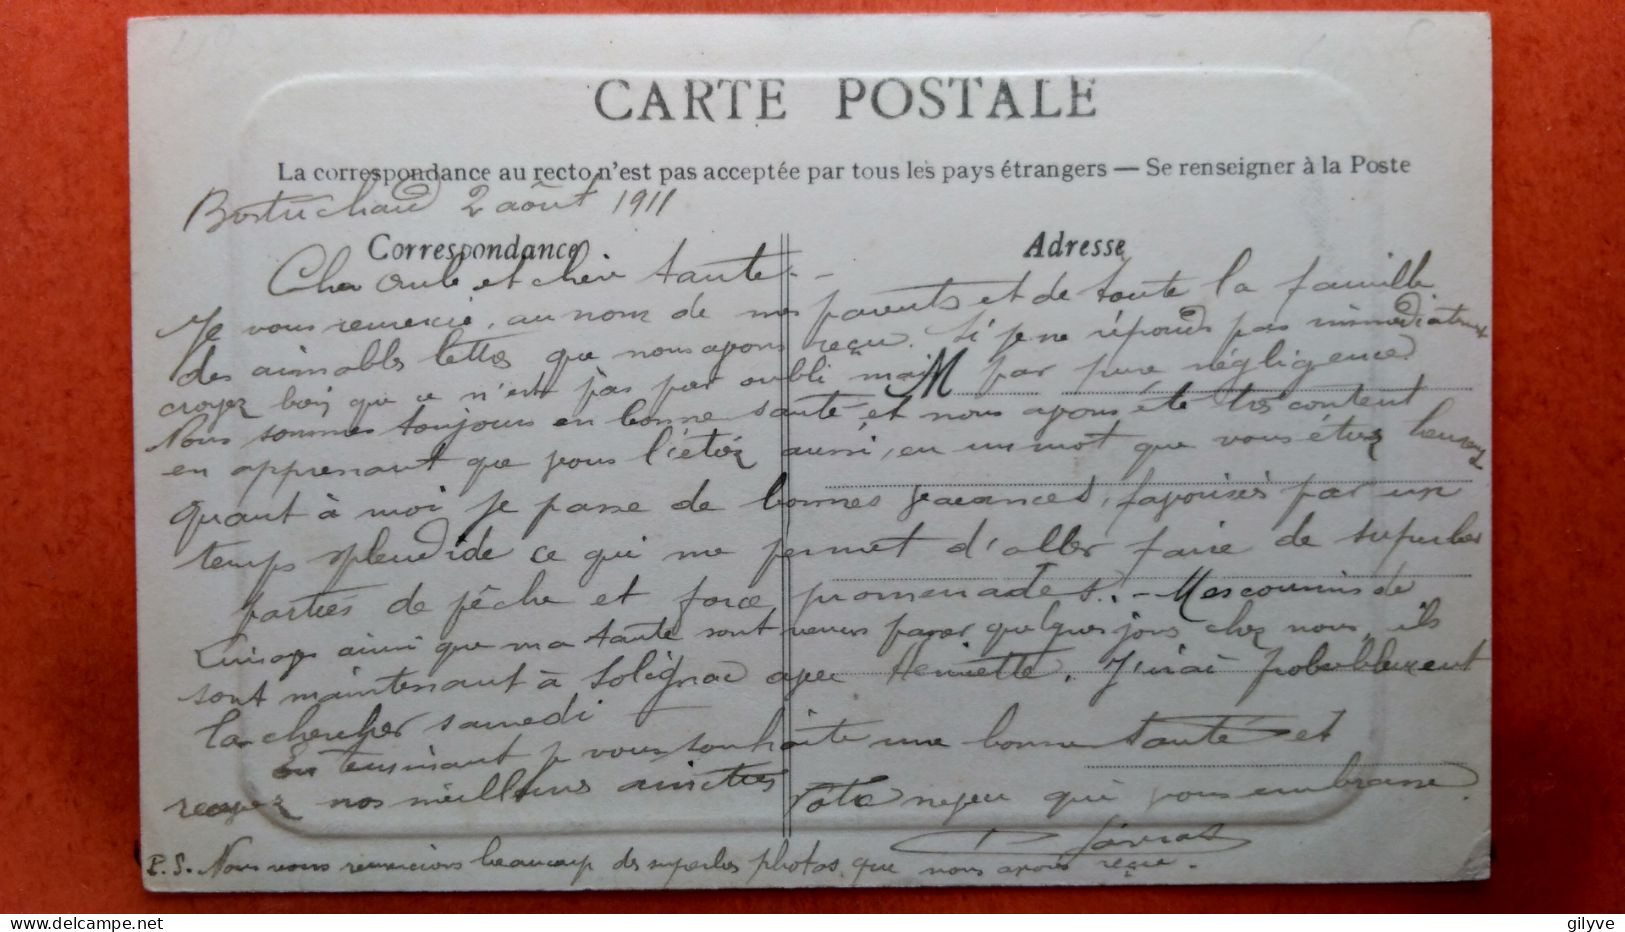 CARTE POSTALE
La correspondance au recto n'est pas acceptée par tous les pays étrangers — Se renseigner à la Poste
2 août 1911
Correspondance
Adresse
Cher Oncle et chère tante. -
Je vous remercie, au nom de mes parents et de toute la famille
des aimables lettres que nous avons reçu. Si je ne réponds pas immédiatement
croyez bien que ce n'est pas par oubli mais par pure négligence.
M
Nous sommes toujours en bonne santé et nous avons été très content
en apprenant que vous l'étiez aussi, en un mot que vous étiez heureux
quant à moi je passe de bonnes vacances, favorisés par un
temps splendide ce qui me permet d'aller faire de superbes
parties de pêche et force promenades. - Mes cousins de
ainsi que ma tante sont venus passer quelques jours chez nous, ils
sont maintenant à Solignac avec Henriette. J'irai probablement
la chercher samedi
En terminant je vous souhaite une bonne santé et
recevez nos meilleurs amitiés
Votre neveu qui vous embrasse.
P. S. Nous vous remercions beaucoup des superbes photos que nous avons reçue.
gilyve